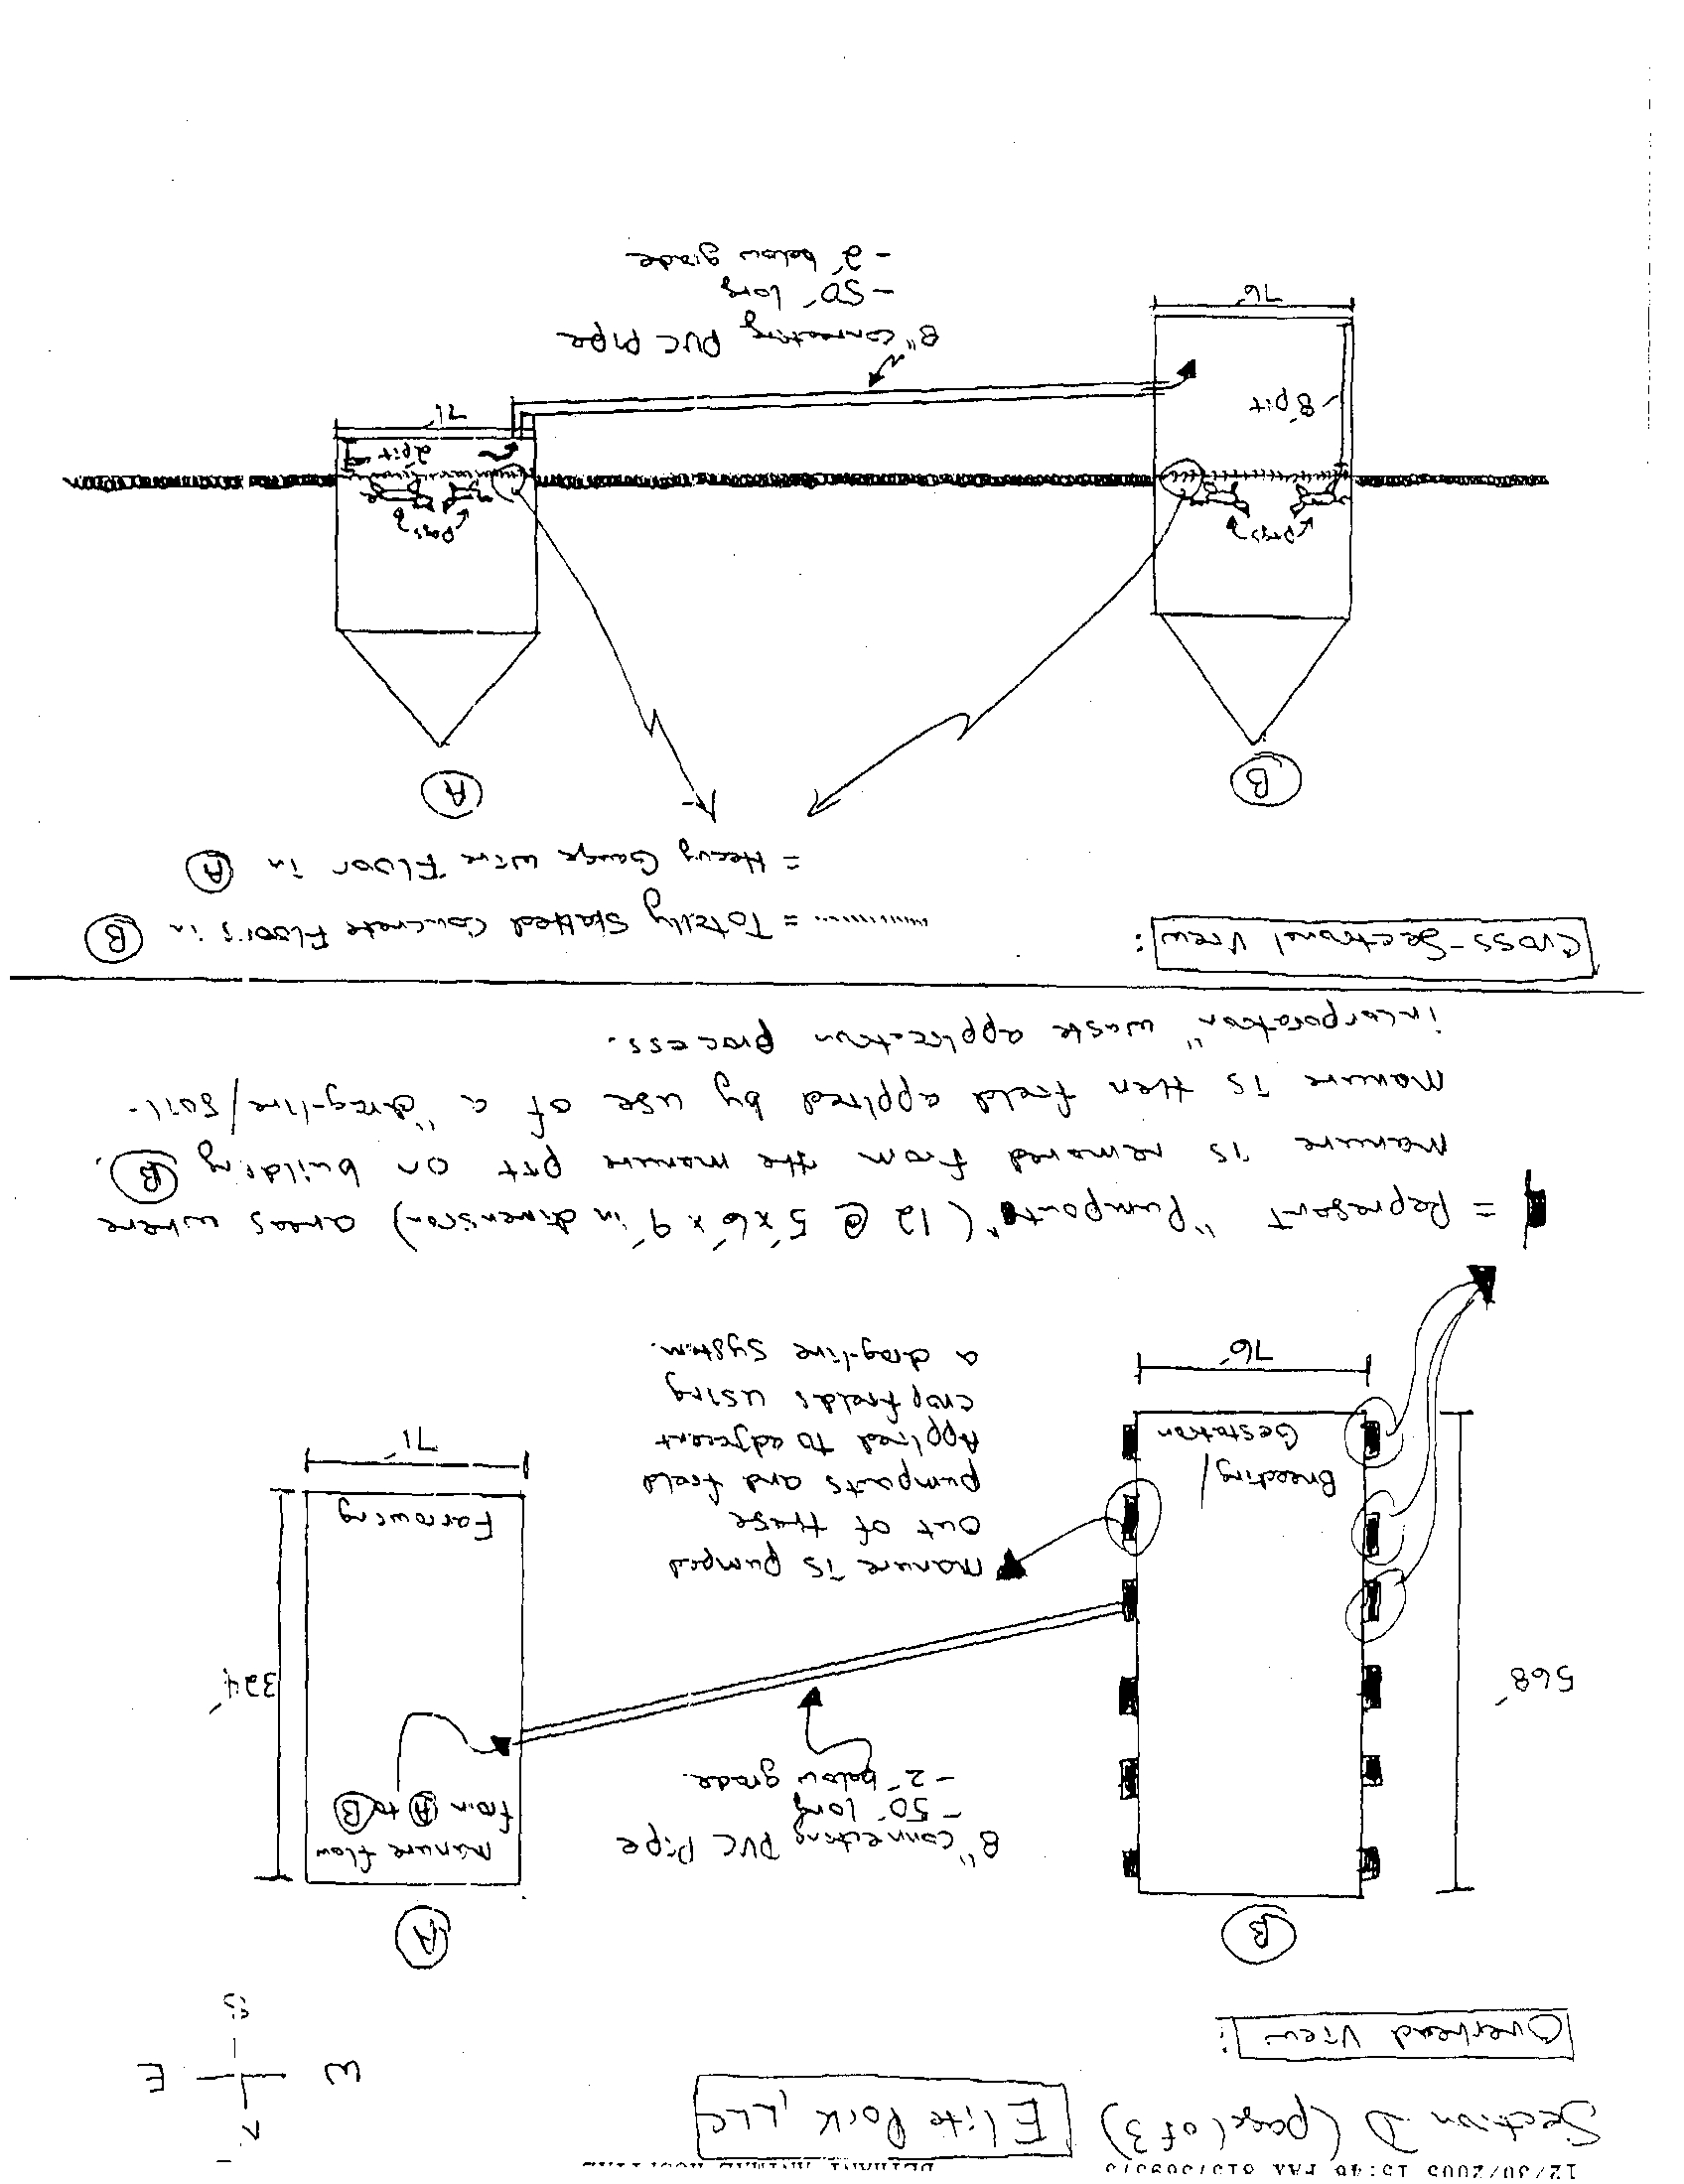 12/30/2005 15:46 FAX
Section D (page 1 of 3) Elite Pork, LLC
N
W E
S
Overhead View:
B
A
8" connecting PVC Pipe
- 50' long
- 2' below grade.
Manure flow
from A to B
568'
324'
Manure is pumped
out of these
pumpouts and field
Applied to adjacent
crop fields using
a drag-line system.
Breeding/
Gestation
Farrowing
76'
71'
= Represent "Pumpouts" (12 @ 5'x6'x9' in dimension) areas where
manure is removed from the manure pit on building B.
Manure is then field applied by use of a "drag-line/soil-
incorporation" waste application process.
Cross-Sectional View:
= Totally Slatted Concrete Floors in B
= Heavy Gauge Wire Floor in A
B
A
pigs
pigs
8' pit
2' pit
76'
71'
8" connecting PVC Pipe
- 50' long
- 2' below grade